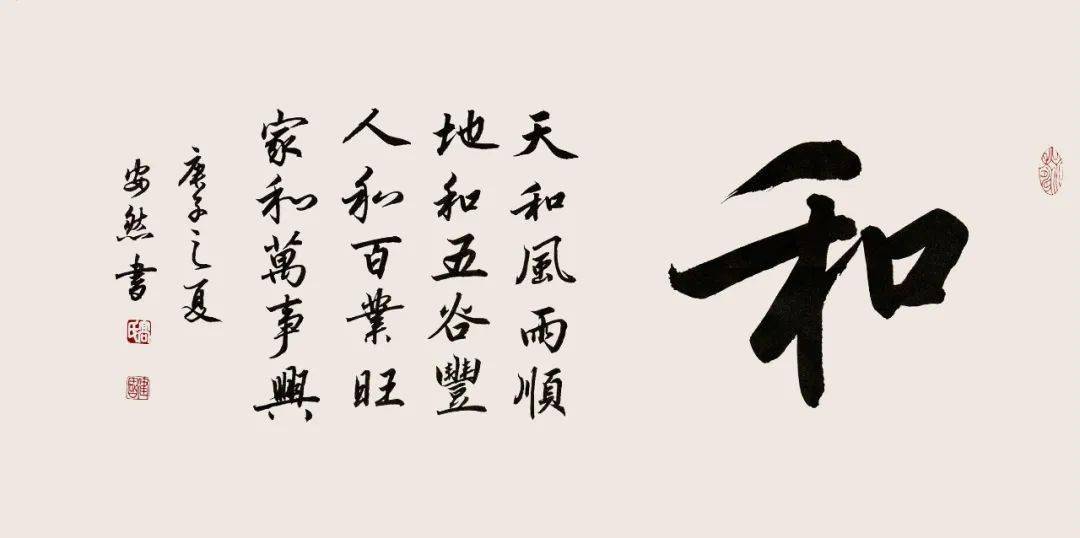 和
天和風雨順
地和五谷豐
人和百業旺
家和萬事興
庚子之夏
安然書